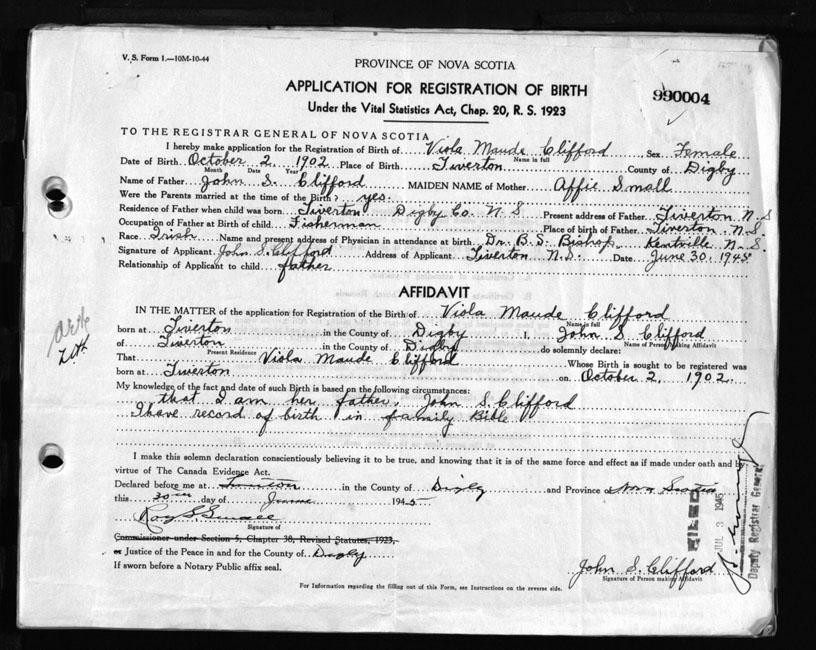 V. S. Form 1.—10M-10-44
PROVINCE OF NOVA SCOTIA
APPLICATION FOR REGISTRATION OF BIRTH
990004
Under the Vital Statistics Act, Chap. 20, R. S. 1923
TO THE REGISTRAR GENERAL OF NOVA SCOTIA
I hereby make application for the Registration of Birth of Viola Maude Clifford Sex Female
Name in full
Date of Birth October 2 1902 Place of Birth Tiverton County of Digby
Month Date Year
Name of Father John S. Clifford MAIDEN NAME of Mother Affie Small
Were the Parents married at the time of the Birth? yes.
Residence of Father when child was born Tiverton Digby Co. N S Present address of Father Tiverton N. S
Occupation of Father at Birth of child Fisherman Place of birth of Father Tiverton N. S.
Race Irish Name and present address of Physician in attendance at birth Dr. B. S. Bishop Kentville N. S.
Signature of Applicant John S. Clifford Address of Applicant Tiverton N. S. Date June 30. 1945
Relationship of Applicant to child father
AFFIDAVIT
IN THE MATTER of the application for Registration of the Birth of Viola Maude Clifford
Name in full
born at Tiverton in the County of Digby I, John S. Clifford
Name of Person Making Affidavit
of Tiverton in the County of Digby do solemnly declare:
Present Residence
That Viola Maude Clifford Whose Birth is sought to be registered was
born at Tiverton on October 2, 1902.
My knowledge of the fact and date of such Birth is based on the following circumstances:
that I am her father, John S. Clifford
I have record of birth in family Bible
I make this solemn declaration conscientiously believing it to be true, and knowing that it is of the same force and effect as if made under oath and by
virtue of The Canada Evidence Act.
Declared before me at Tiverton in the County of Digby and Province Nova Scotia
this 30th day of June 1945
Roy S. Small
Signature of
Commissioner under Section 5, Chapter 38, Revised Statutes, 1923,
or Justice of the Peace in and for the County of Digby
If sworn before a Notary Public affix seal.
John S. Clifford
Signature of Person making Affidavit
For Information regarding the filling out of this Form, see Instructions on the reverse side.
FILED
JUL 3 1945
Deputy Registrar General